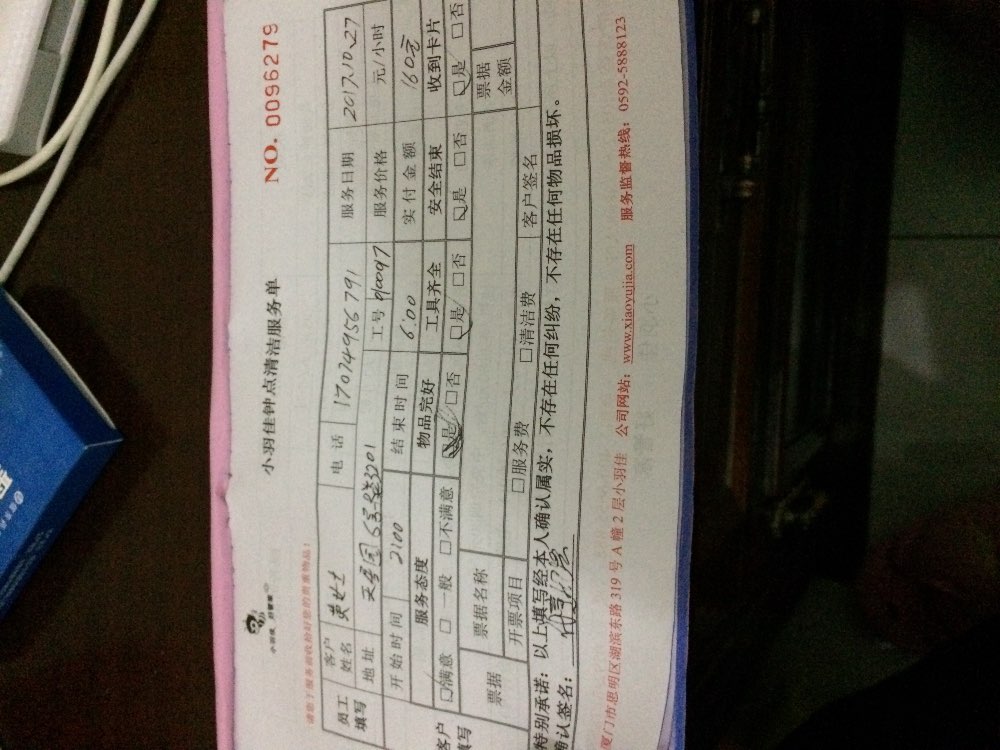 小羽佳 好管家
小羽佳钟点清洁服务单
NO. 0096279
请您于服务前收拾好您的贵重物品!
员工填写 客户姓名 黄女士 电话 17074956791 服务日期 2017.10.27
地址 6号 3201 工号 服务价格 元/小时
开始时间 2:00 结束时间 6:00 实付金额 160元
客户填写 服务态度 物品完好 工具齐全 安全结束 收到卡片
□满意 □一般 □不满意 □是 □否 □是 □否 □是 □否 □是 □否
票据 票据名称 票据金额
开票项目 □服务费 □清洁费 客户签名
特别承诺: 以上填写经本人确认属实, 不存在任何纠纷, 不存在任何物品损坏。
确认签名:
厦门市思明区湖滨东路 319 号 A 幢 2 层小羽佳 公司网站: www.xiaoyujia.com 服务监督热线: 0592-5888123